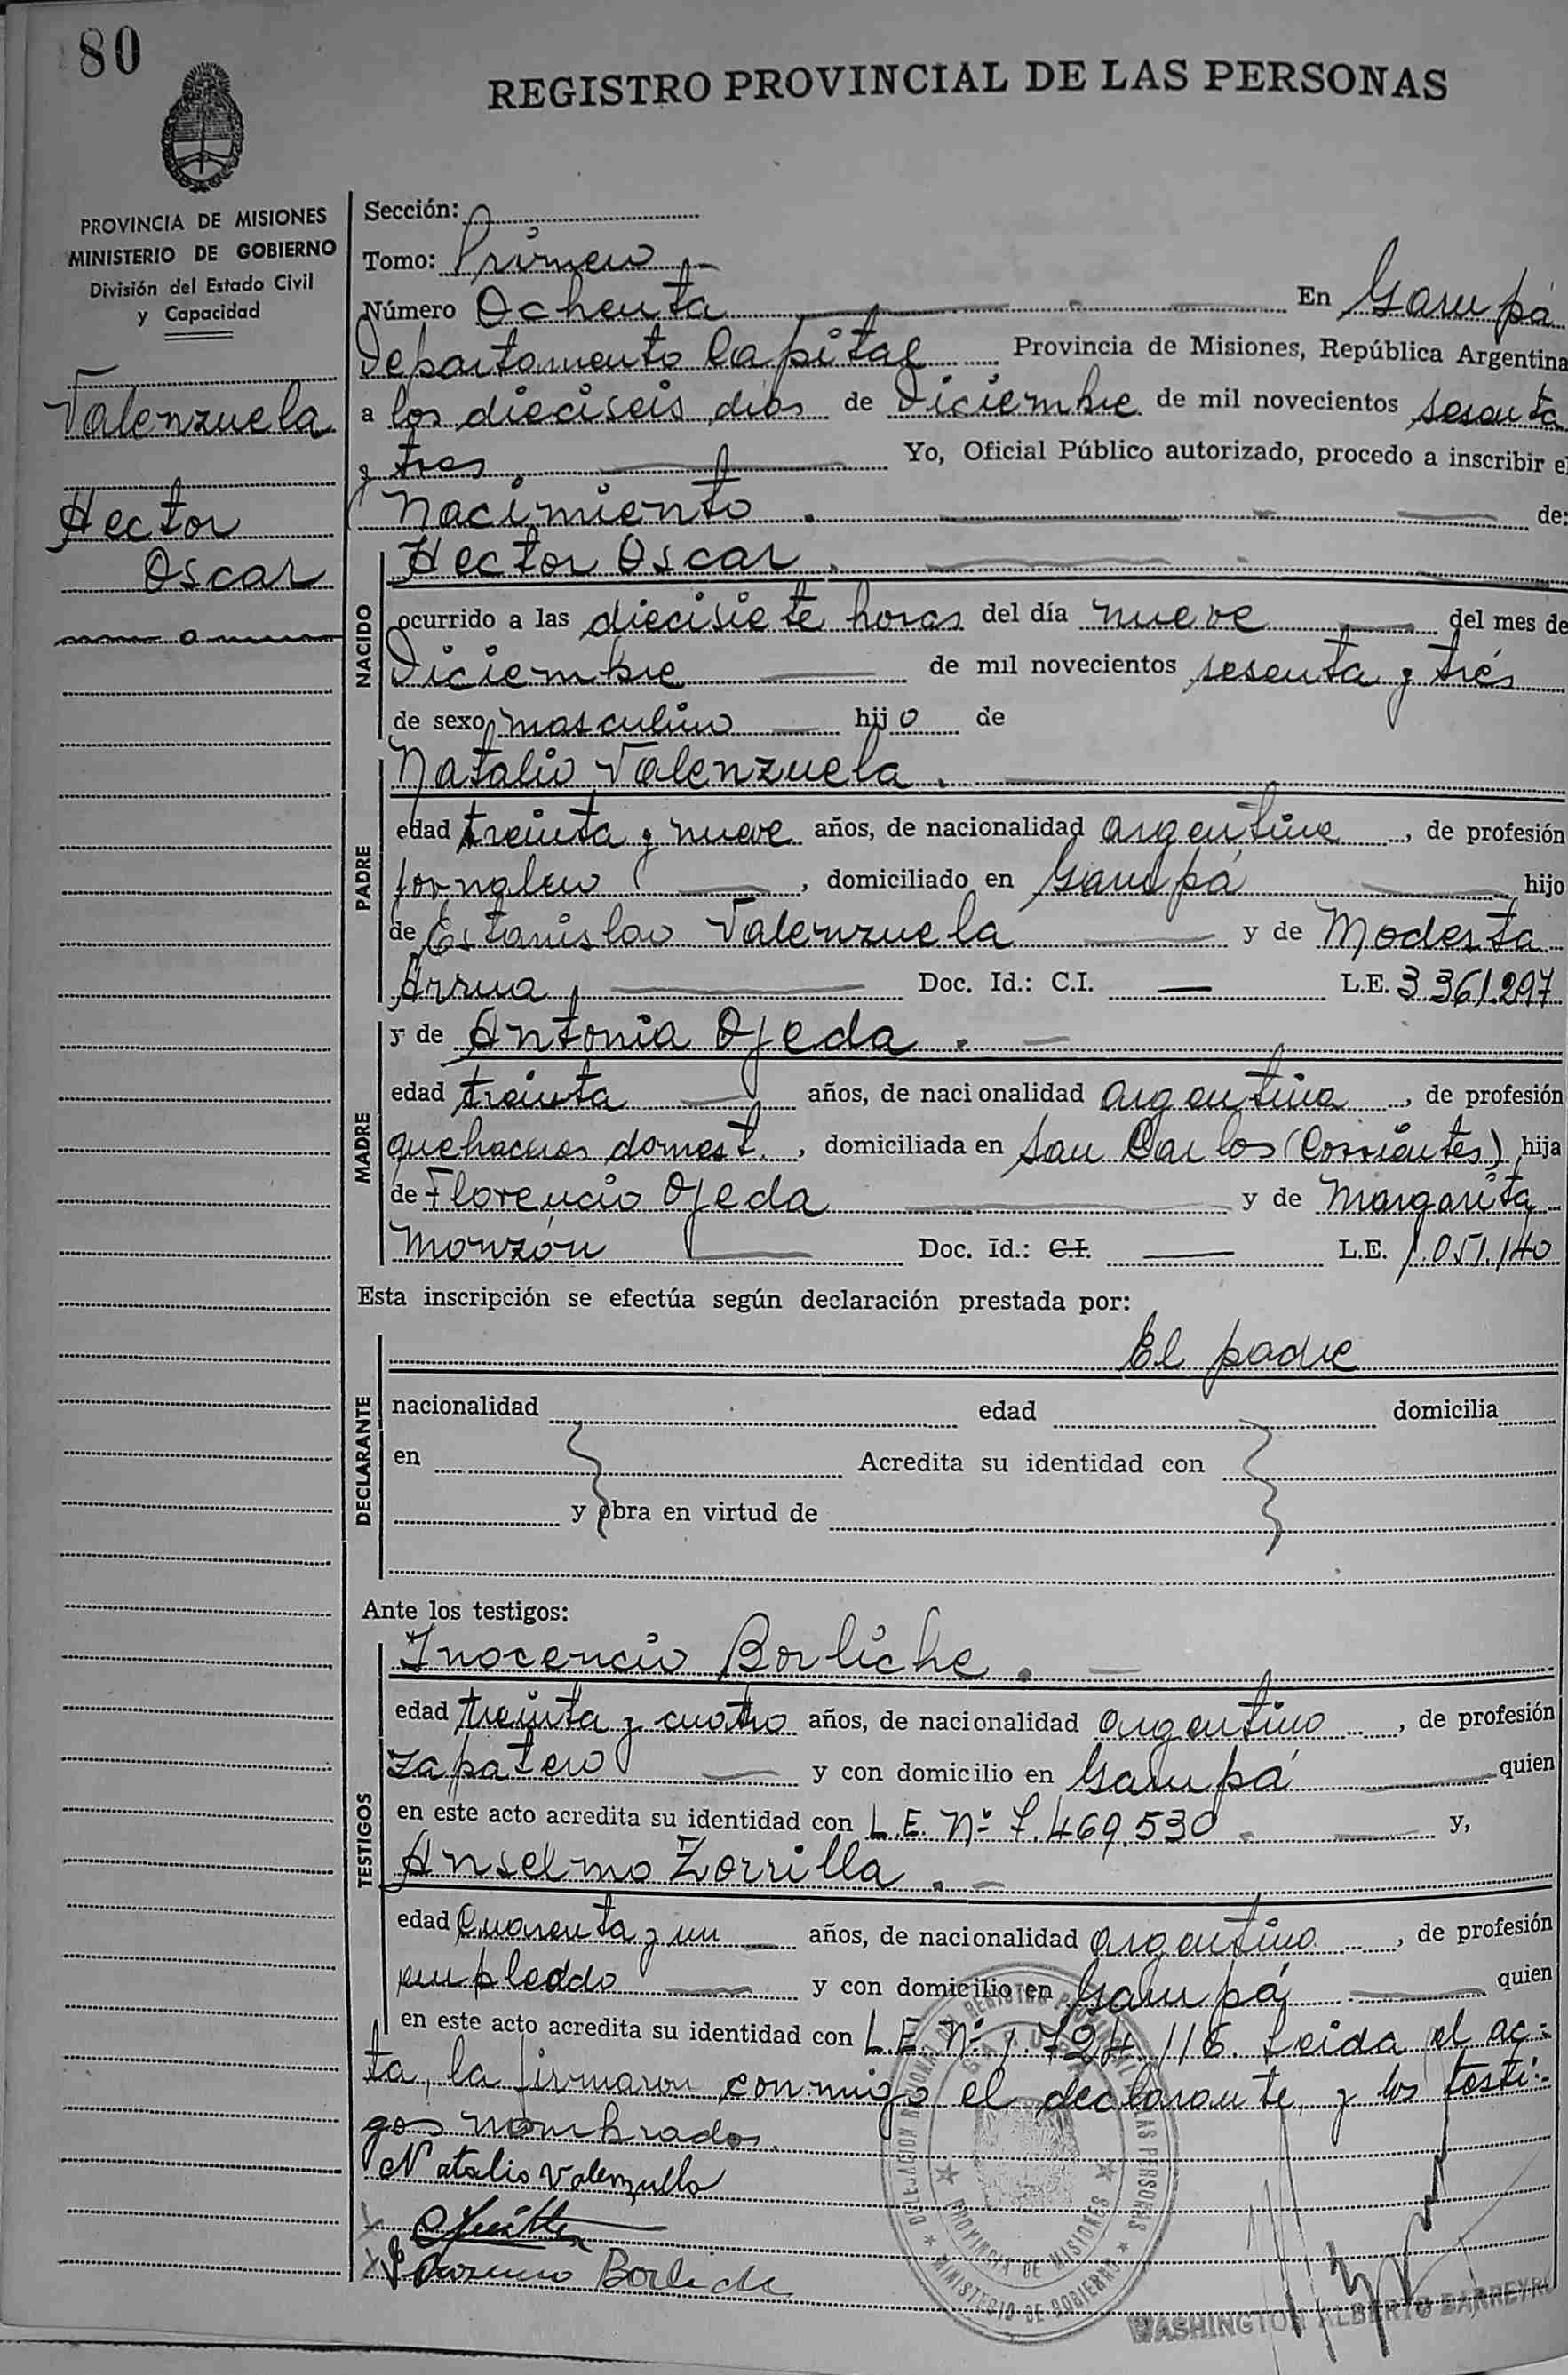 80
REGISTRO PROVINCIAL DE LAS PERSONAS
PROVINCIA DE MISIONES
MINISTERIO DE GOBIERNO
División del Estado Civil
y Capacidad
Valenzuela
Hector
Oscar
Sección:
Tomo: Primero
Número Ochenta En Garupá
Departamento Capital Provincia de Misiones, República Argentina
a los dieciseis dias de Diciembre de mil novecientos sesenta
y tres Yo, Oficial Público autorizado, procedo a inscribir el
Nacimiento de:
NACIDO
Hector Oscar.
ocurrido a las diecisiete horas del día nueve del mes de
Diciembre de mil novecientos sesenta y trés
de sexo masculino hijo de
PADRE
Natalio Valenzuela.
edad treinta y nueve años, de nacionalidad argentina, de profesión
jornalero, domiciliado en Garupá hijo
de Estanislao Valenzuela y de Modesta
Arrua Doc. Id.: C.I. — L.E. 3.361.297
MADRE
y de Antonia Ojeda.
edad treinta años, de nacionalidad argentina, de profesión
quehaceres domest., domiciliada en San Carlos (Corrientes) hija
de Florencio Ojeda y de Margarita
Monzón Doc. Id.: C.I. — L.E. 1.051.140
Esta inscripción se efectúa según declaración prestada por:
DECLARANTE
El padre
nacionalidad edad domicilia
en Acredita su identidad con
y obra en virtud de
Ante los testigos:
TESTIGOS
Inocencio Borliche.
edad treinta y cuatro años, de nacionalidad argentino, de profesión
zapatero y con domicilio en Garupá quien
en este acto acredita su identidad con L.E. Nº 7.469.530 y,
Anselmo Zorrilla.
edad Cuarenta y un años, de nacionalidad argentino, de profesión
empleado y con domicilio en Garupá quien
en este acto acredita su identidad con L.E. Nº 1.724.116. Leida el ac-
ta, la firmaron conmigo el declarante, y los testi-
gos nombrados.
Natalio Valenzuela
Borliche
PROVINCIA DE MISIONES
MINISTERIO DE GOBIERNO
WASHINGTON ALBERTO BARREYRO